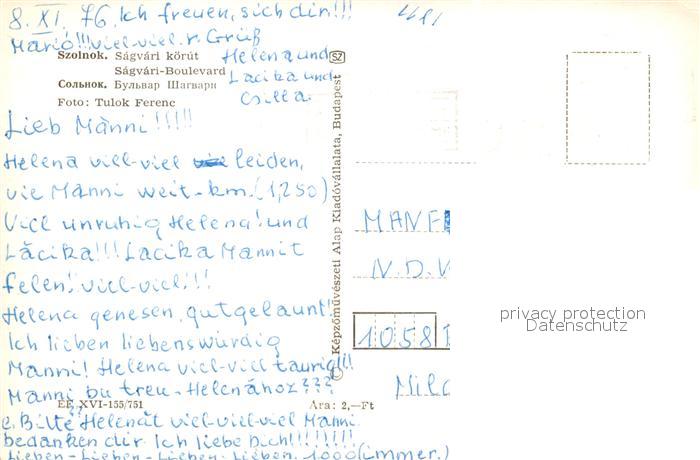 8. XI. 76. Ich freuen, sich dir!!!
481
Marió!!! viel-viel. r. Grüß
Helena und
Lacika und
Csilla.
Szolnok. Ságvári körút
Ságvári-Boulevard
Сольнок. Бульвар Шагвари
Foto: Tulok Ferenc
SZ
Lieb Mànni!!!!!
Helena viell-viel leiden,
vie Mànni weit-km. (1,250)
Viell unruhig Helena! und
Làcika!!! Lacika Mannit
felen! viel-viel!!!
Helena genesen, gutgelaunt!!
Ich lieben liebenswürdig
Manni! Helena viel-viel taurig!!!
Manni du treu-Helenához???
ÉE XVI-155/751
Ára: 2,—Ft
e. Bitte?? Helenát viel-viel-viel Manni
bedanken dir. Ich liebe Dich!!!!!!!!
Lieben-Lieben-Lieben-Lieben. 1000 (immer.)
© Képzőművészeti Alap Kiadóvállalata, Budapest
MANF
N.D.V
1058
Mila
privacy protection
Datenschutz